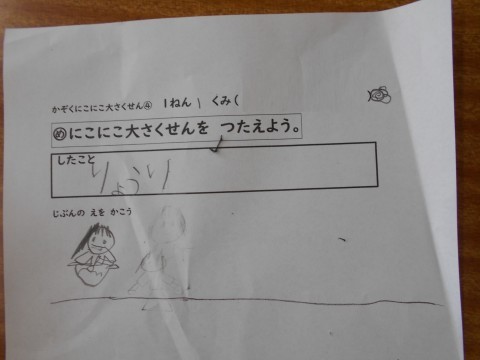 かぞくにこにこ大さくせん④ 1ねん 1 くみ(
め にこにこ大さくせんを つたえよう。
したこと
りょうり
じぶんの えを かこう